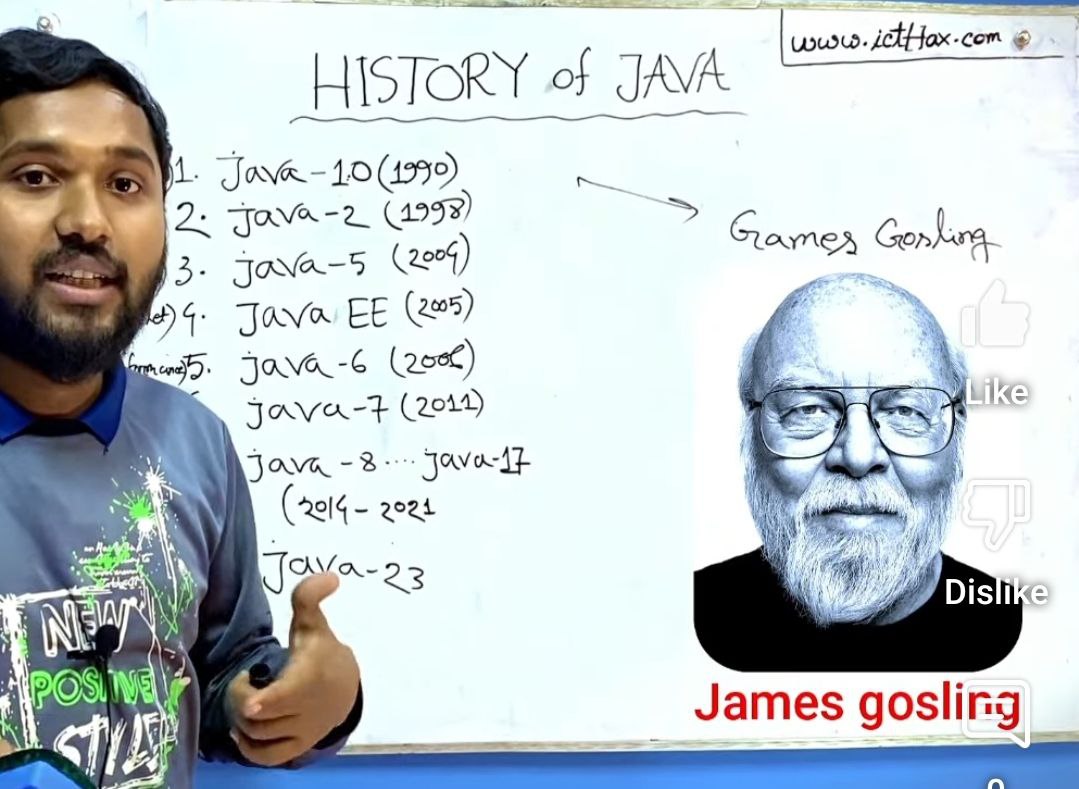 www.ictHax.com
HISTORY of JAVA
1. Java-1.0 (1990)
2. java-2 (1998)
3. java-5 (2004)
4. Java EE (2005)
5. java-6 (2006)
java-7 (2011)
java-8.... java-17
(2014-2021
Java-23
Games Gosling
James gosling
Like
Dislike
0
NEW
POSITIVE
STYLE